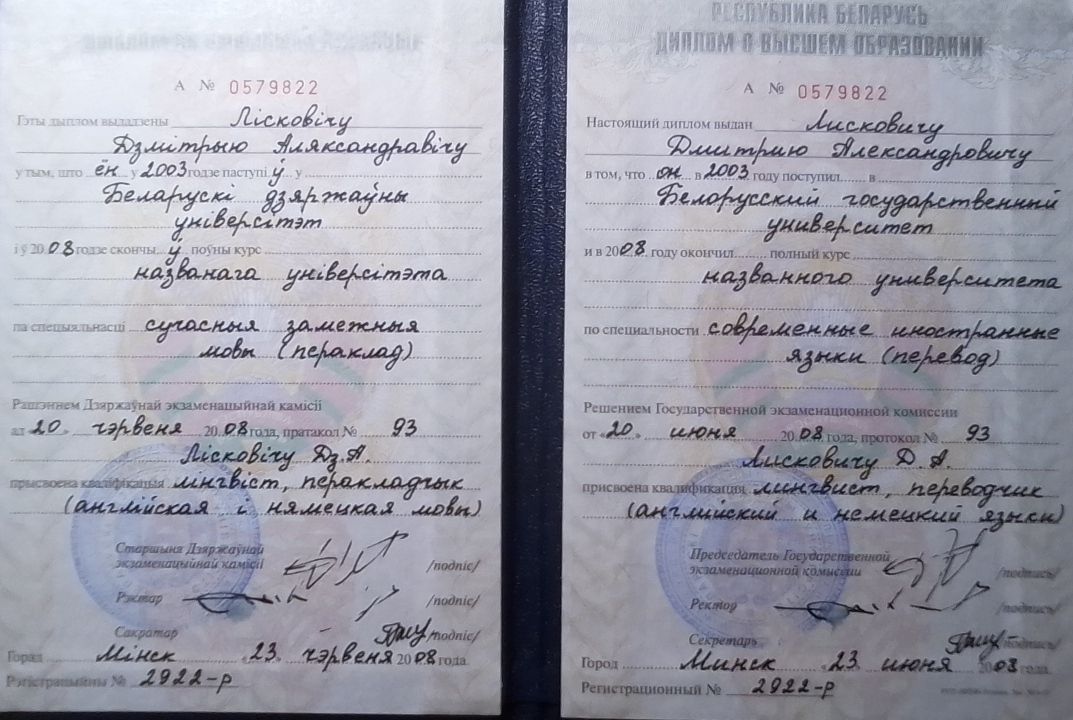 А № 0579822
Гэты дыплом выдадзены Лісковічу
Дзмітрыю Аляксандравічу
у тым, што ён у 2003 годзе паступіў у
Беларускі дзяржаўны
універсітэт
і ў 2008 годзе скончыў поўны курс
названага універсітэта
па спецыяльнасці сучасныя замежныя
мовы (пераклад)
Рашэннем Дзяржаўнай экзаменацыйнай камісіі
ад «20» чэрвеня 2008 года, пратакол № 93
Лісковічу Дз.А.
прысвоена кваліфікацыя лінгвіст, перакладчык
(английская і нямецкая мовы)
Старшыня Дзяржаўнай
экзаменацыйнай камісіі /подпіс/
Рэктар /подпіс/
Сакратар /подпіс/
Горад Мінск «23» чэрвеня 2008 года
Рэгістрацыйны № 2922-р
РЕСПУБЛИКА БЕЛАРУСЬ
ДИПЛОМ О ВЫСШЕМ ОБРАЗОВАНИИ
А № 0579822
Настоящий диплом выдан Лисковичу
Дмитрию Александровичу
в том, что он в 2003 году поступил в
Белорусский государственный
университет
и в 2008 году окончил полный курс
названного университета
по специальности современные иностранные
языки (перевод)
Решением Государственной экзаменационной комиссии
от «20» июня 2008 года, протокол № 93
Лисковичу Д. А.
присвоена квалификация лингвист, переводчик
(английский и немецкий языки)
Председатель Государственной
экзаменационной комиссии /подпись/
Ректор /подпись/
Секретарь /подпись/
Город Минск «23» июня 2008 года.
Регистрационный № 2922-р